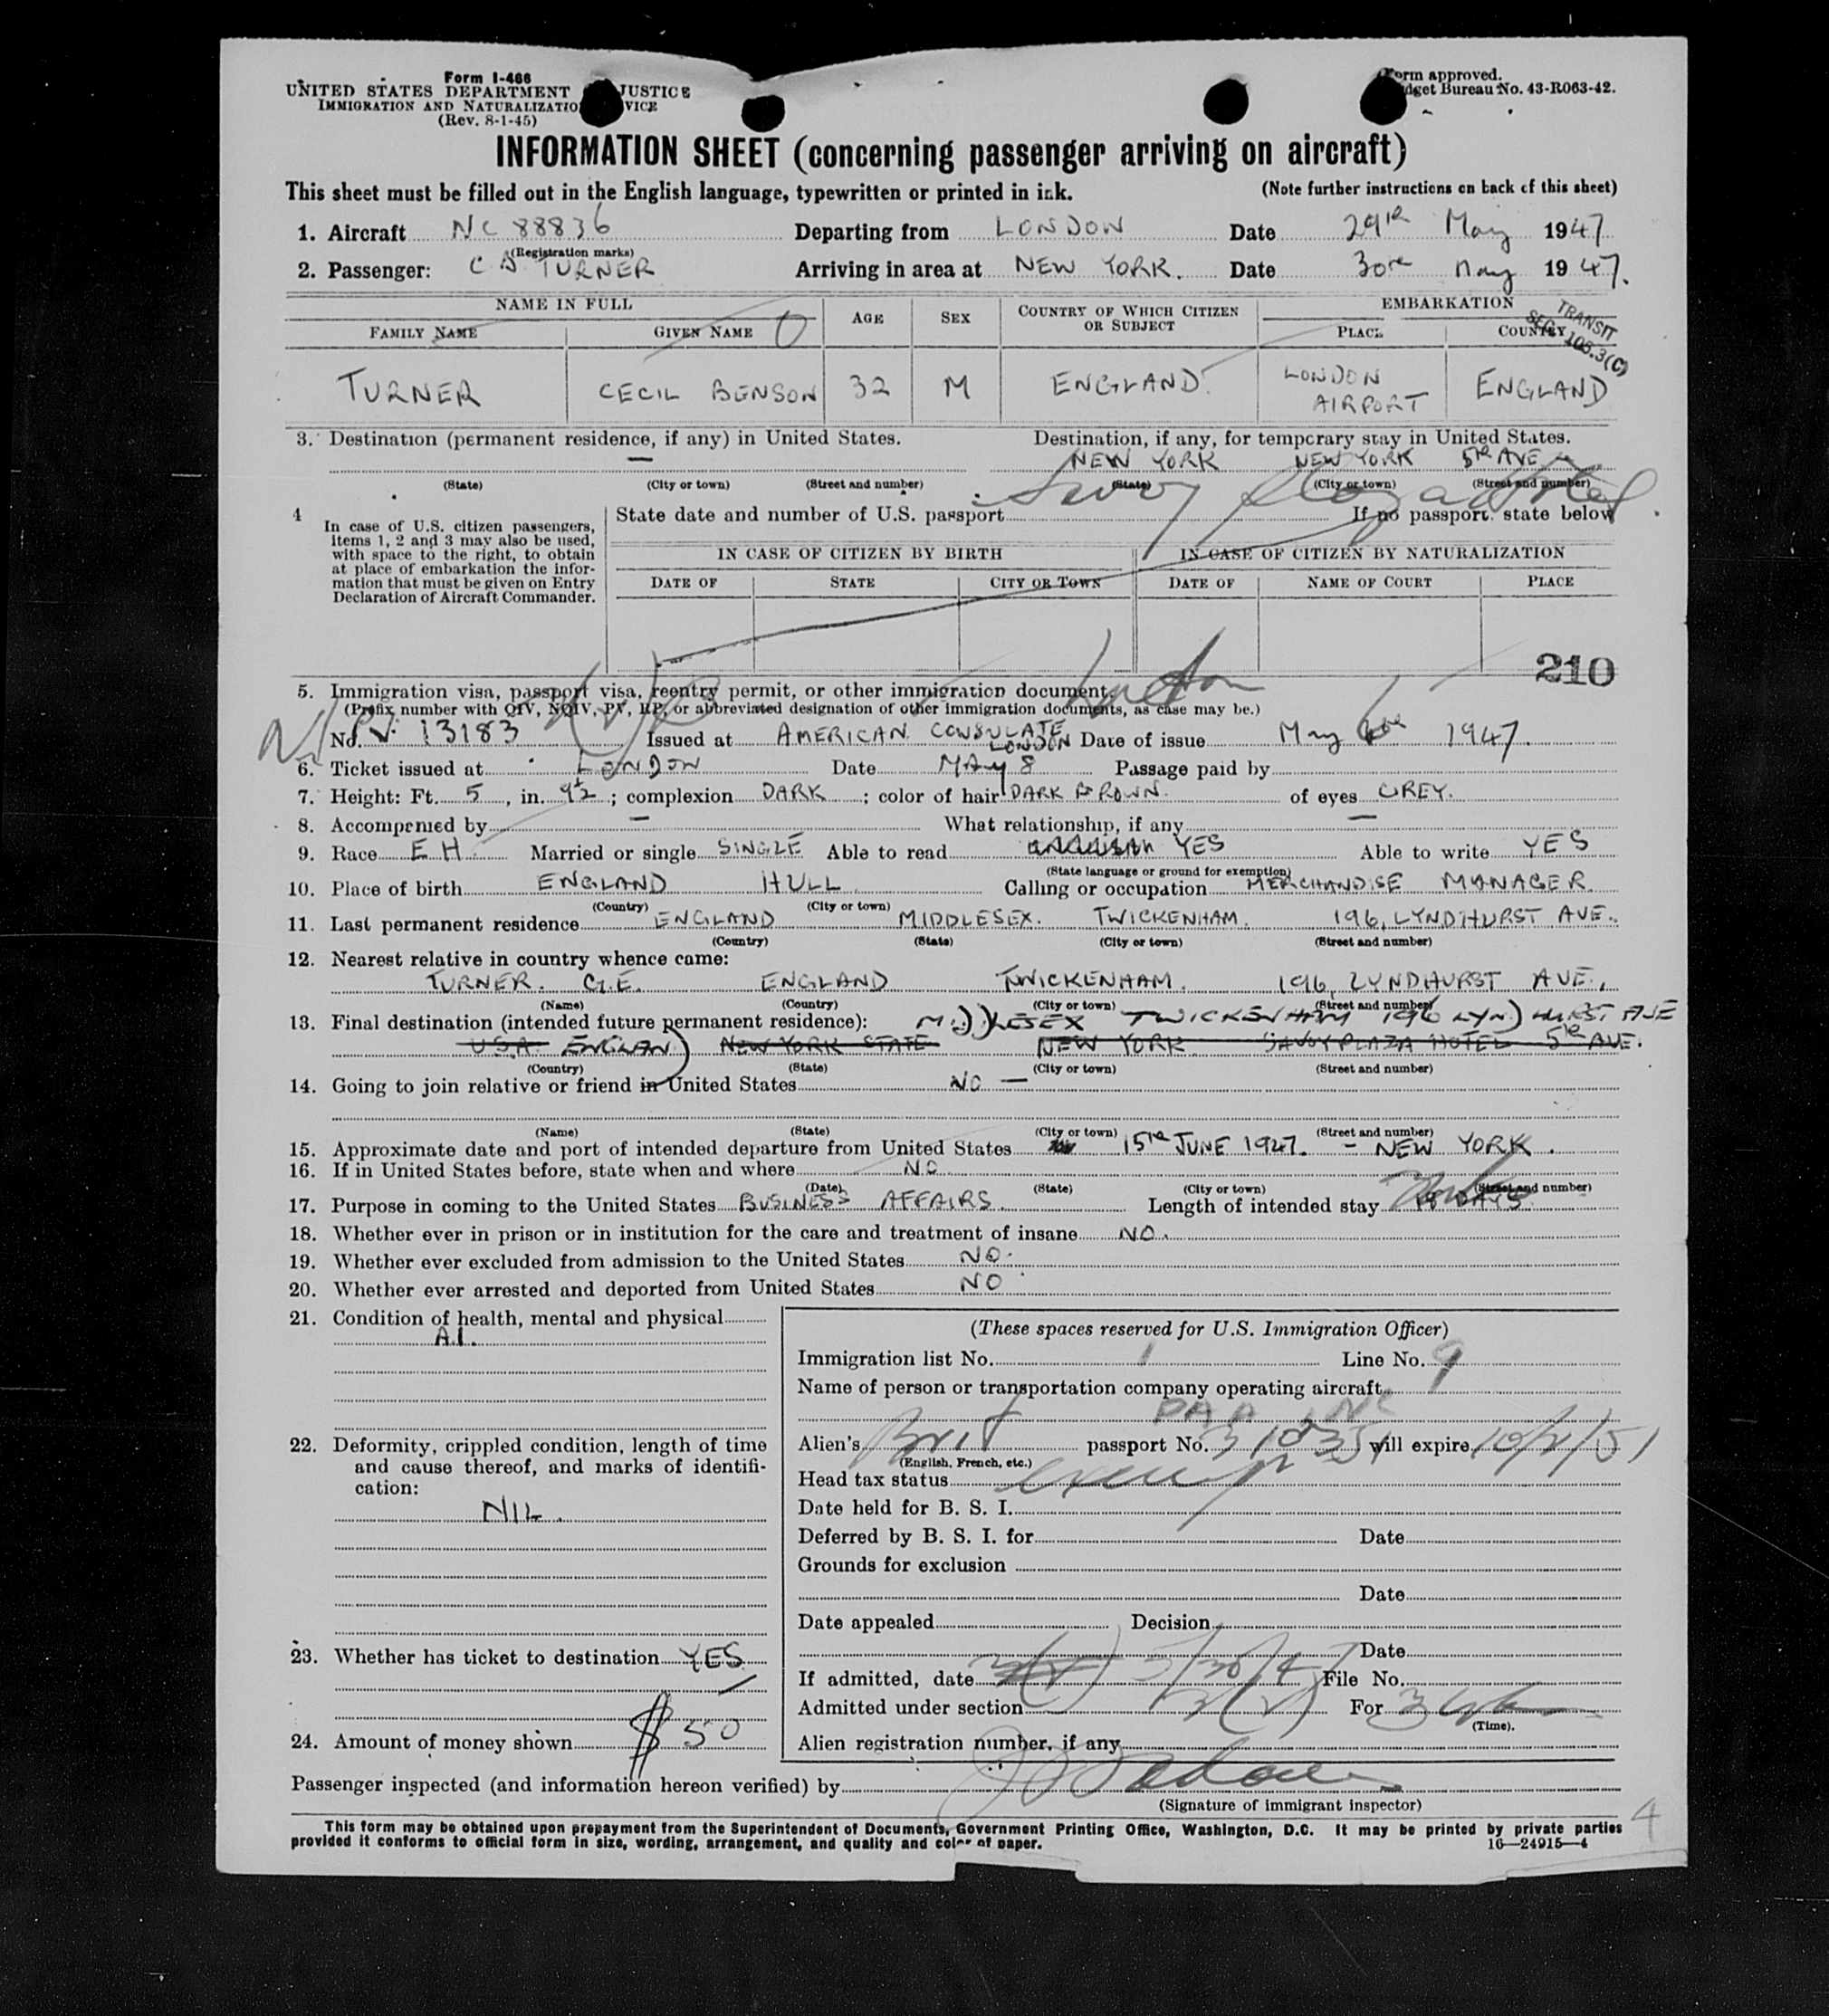 Form I-466
UNITED STATES DEPARTMENT JUSTICE
IMMIGRATION AND NATURALIZATIO VICE
(Rev. 8-1-45)
orm approved.
dget Bureau No. 43-R063-42.
INFORMATION SHEET (concerning passenger arriving on aircraft)
This sheet must be filled out in the English language, typewritten or printed in ink. (Note further instructions on back of this sheet)
1. Aircraft NC 88836 Departing from LONDON Date 29th May 1947
(Registration marks)
2. Passenger: C B TURNER Arriving in area at NEW YORK. Date 30th May 1947.
NAME IN FULL AGE SEX COUNTRY OF WHICH CITIZEN OR SUBJECT EMBARKATION
FAMILY NAME GIVEN NAME PLACE COUNTRY
TRANSIT
SEC. 103.3(C)
TURNER CECIL BENSON 32 M ENGLAND. LONDON AIRPORT ENGLAND
3. Destination (permanent residence, if any) in United States. Destination, if any, for temporary stay in United States.
— NEW YORK NEW YORK 5th AVE
(State) (City or town) (Street and number) (State) (City or town) (Street and number)
Savoy Plaza Hotel.
4 In case of U.S. citizen passengers, items 1, 2 and 3 may also be used, with space to the right, to obtain at place of embarkation the information that must be given on Entry Declaration of Aircraft Commander.
State date and number of U.S. passport If no passport state below
IN CASE OF CITIZEN BY BIRTH IN CASE OF CITIZEN BY NATURALIZATION
DATE OF STATE CITY OR TOWN DATE OF NAME OF COURT PLACE
210
5. Immigration visa, passport visa, reentry permit, or other immigration document,
(Prefix number with QIV, NQIV, PV, RP, or abbreviated designation of other immigration documents, as case may be.)
No. P.V. 13183 Issued at AMERICAN CONSULATE LONDON Date of issue May 6th 1947.
6. Ticket issued at LONDON Date MAY 8 Passage paid by
7. Height: Ft. 5, in. 9½; complexion DARK; color of hair DARK BROWN. of eyes GREY.
8. Accompanied by — What relationship, if any —
9. Race E H. Married or single SINGLE Able to read YES Able to write YES
(State language or ground for exemption)
10. Place of birth ENGLAND HULL Calling or occupation MERCHANDISE MANAGER.
(Country) (City or town)
11. Last permanent residence ENGLAND MIDDLESEX. TWICKENHAM. 196, LYNDHURST AVE.
(Country) (State) (City or town) (Street and number)
12. Nearest relative in country whence came:
TURNER. G.E. ENGLAND TWICKENHAM. 196, LYNDHURST AVE.,
(Name) (Country) (City or town) (Street and number)
13. Final destination (intended future permanent residence): MIDDLESEX TWICKENHAM 196 LYNDHURST AVE
U.S.A. ENGLAND NEW YORK STATE NEW YORK. SAVOY PLAZA HOTEL 5th AVE.
(Country) (State) (City or town) (Street and number)
14. Going to join relative or friend in United States NO —
(Name) (State) (City or town) (Street and number)
15. Approximate date and port of intended departure from United States 15th JUNE 1947. - NEW YORK.
16. If in United States before, state when and where NO
(Date) (State) (City or town) (Street and number)
17. Purpose in coming to the United States BUSINESS AFFAIRS. Length of intended stay DAYS
18. Whether ever in prison or in institution for the care and treatment of insane NO.
19. Whether ever excluded from admission to the United States NO.
20. Whether ever arrested and deported from United States NO
21. Condition of health, mental and physical
A.1.
22. Deformity, crippled condition, length of time and cause thereof, and marks of identification:
NIL.
23. Whether has ticket to destination YES
24. Amount of money shown $ 50
(These spaces reserved for U.S. Immigration Officer)
Immigration list No. 1 Line No. 9
Name of person or transportation company operating aircraft
PAA INC
Alien's Brit passport No. will expire
(English, French, etc.)
Head tax status exempt
Date held for B. S. I.
Deferred by B. S. I. for Date
Grounds for exclusion
Date
Date appealed Decision
Date
If admitted, date 5/30/47 File No.
Admitted under section 3(2) For 3
(Time).
Alien registration number, if any
Passenger inspected (and information hereon verified) by
(Signature of immigrant inspector)
This form may be obtained upon prepayment from the Superintendent of Documents, Government Printing Office, Washington, D.C. It may be printed by private parties
provided it conforms to official form in size, wording, arrangement, and quality and color of paper. 16—24915—4
4